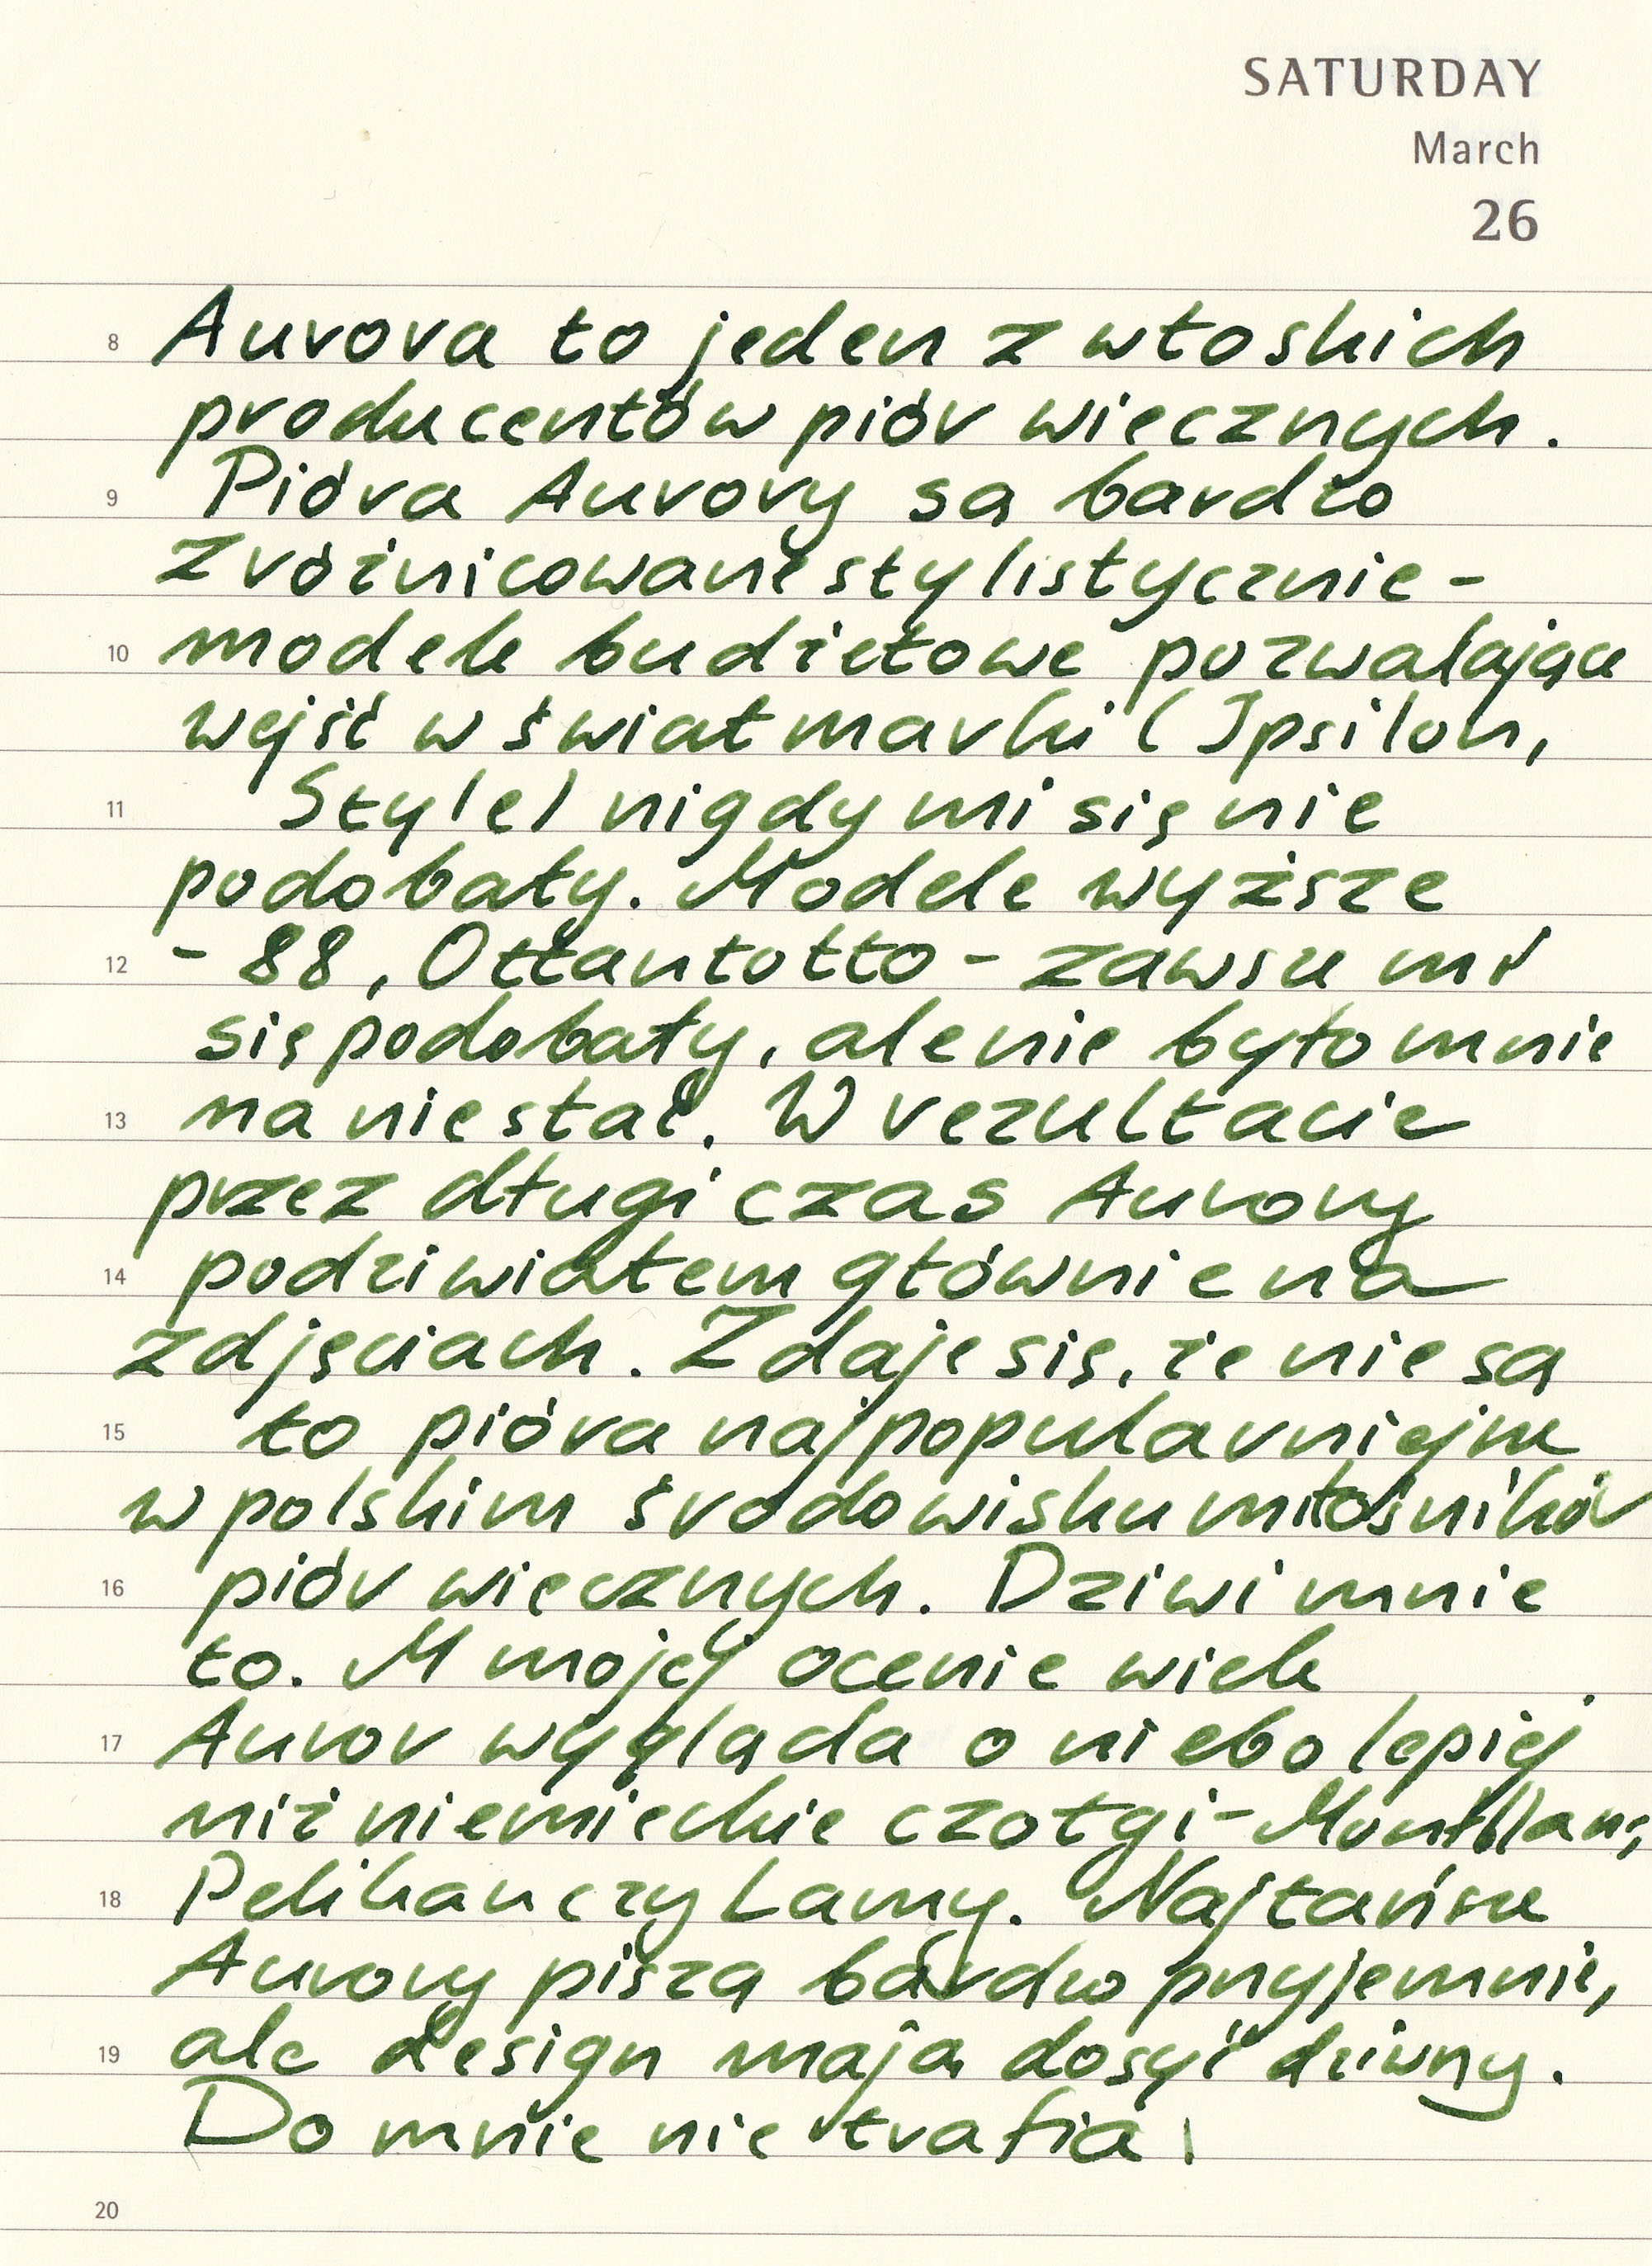 SATURDAY
March
26
8 Aurora to jeden z włoskich
producentów piór wiecznych.
9 Pióra Aurory są bardzo
zróżnicowane stylistycznie -
10 modele budżetowe pozwalające
wejść w świat marki (Ipsilon,
11 Style) nigdy mi się nie
podobały. Modele wyższe
12 - 88, Ottantotto - zawsze mi
się podobały, ale nie było mnie
13 na nie stać. W rezultacie
przez długi czas Aurory
14 podziwiałem głównie na
zdjęciach. Zdaje się, że nie są
15 to pióra najpopularniejsze
w polskim środowisku miłośników
16 piór wiecznych. Dziwi mnie
to. W mojej ocenie wiele
17 Auror wygląda o niebo lepiej
niż niemieckie czołgi - Montblany,
18 Pelikan czy Lamy. Najtańsze
Aurory piszą bardzo przyjemnie,
19 ale design mają dosyć dziwny.
Do mnie nie trafia!
20